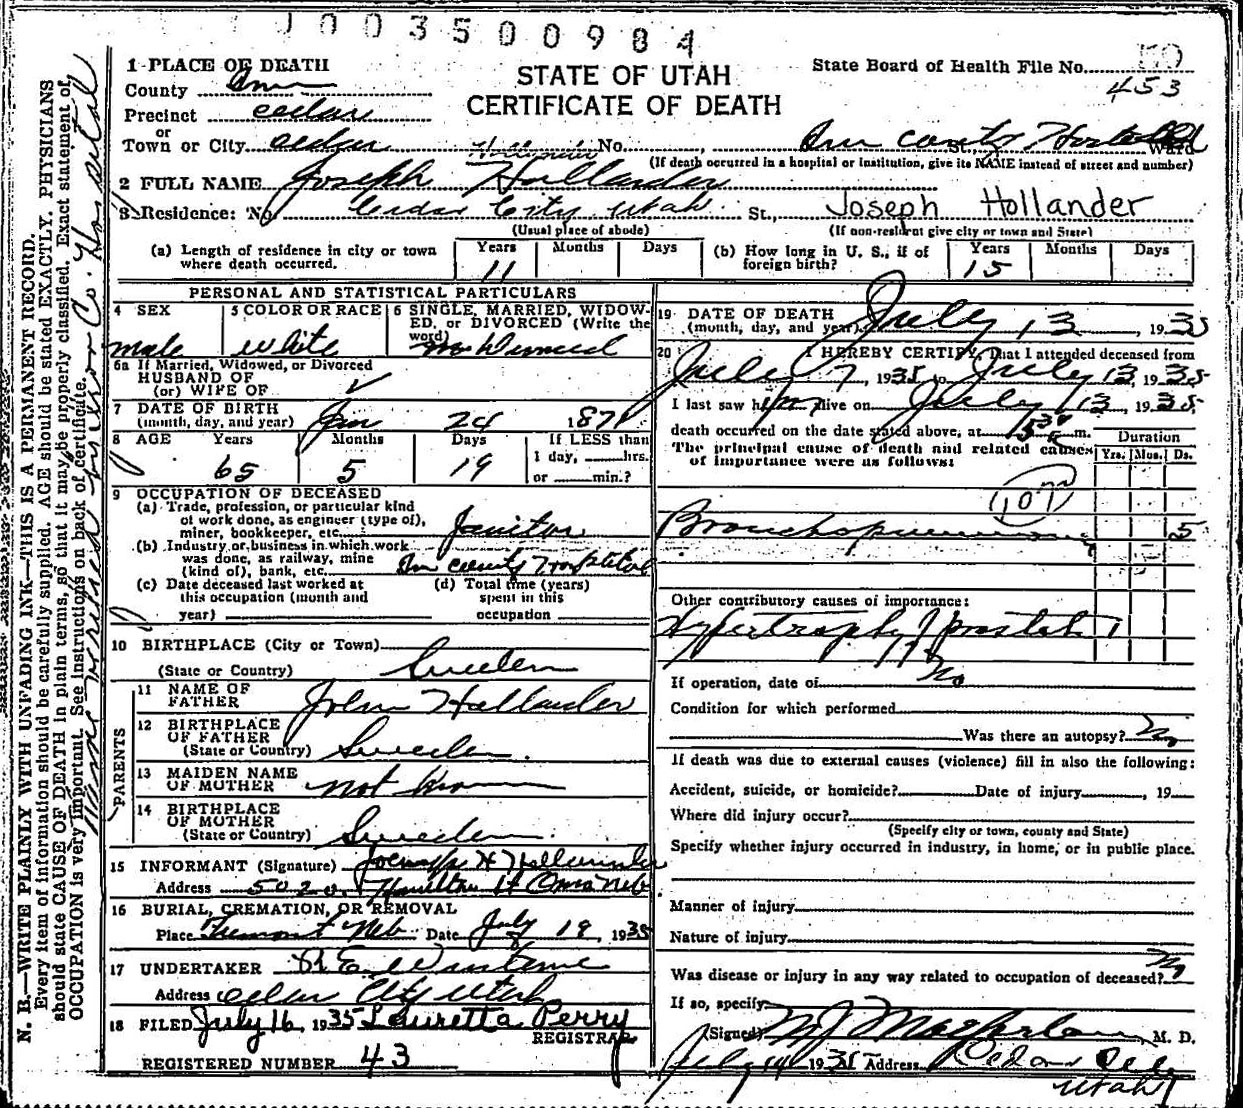 J 0 0 3 5 0 0 9 8 4
1 PLACE OF DEATH
STATE OF UTAH
CERTIFICATE OF DEATH
State Board of Health File No.
453
County Iron
Precinct cedar
or
Town or City cedar No. Iron county Hospital
(If death occurred in a hospital or institution, give its NAME instead of street and number)
2 FULL NAME Joseph Hollander
3 Residence: No. Cedar City, Utah St., Joseph Hollander
(Usual place of abode) (If non-resident give city or town and State)
(a) Length of residence in city or town where death occurred. Years 11 Months Days
(b) How long in U. S., if of foreign birth? Years 15 Months Days
PERSONAL AND STATISTICAL PARTICULARS
4 SEX male
5 COLOR OR RACE White
6 SINGLE, MARRIED, WIDOWED, or DIVORCED (Write the word)
6a If Married, Widowed, or Divorced
HUSBAND OF
(or) WIFE OF
7 DATE OF BIRTH
(month, day, and year) Jan 24 187
8 AGE Years 65 Months 5 Days 19 If LESS than 1 day, hrs. or min.?
9 OCCUPATION OF DECEASED
(a) Trade, profession, or particular kind of work done, as engineer (type of), miner, bookkeeper, etc. Janitor
(b) Industry or business in which work was done, as railway, mine (kind of), bank, etc. Iron county Hospital
(c) Date deceased last worked at this occupation (month and year)
(d) Total time (years) spent in this occupation
10 BIRTHPLACE (City or Town)
(State or Country) Sweden
PARENTS
11 NAME OF FATHER John Hollander
12 BIRTHPLACE OF FATHER
(State or Country) Sweden
13 MAIDEN NAME OF MOTHER not known
14 BIRTHPLACE OF MOTHER
(State or Country) Sweden
15 INFORMANT (Signature) H Hollander
Address 5020 Hamilton St Oma Neb
16 BURIAL, CREMATION, OR REMOVAL
Place Fremont Neb Date July 18, 1935
17 UNDERTAKER
Address Cedar City Utah
18 FILED July 16, 1935 Lauretta Perry
REGISTRAR
REGISTERED NUMBER 43
19 DATE OF DEATH
(month, day, and year) July 13, 1935
20 I HEREBY CERTIFY, That I attended deceased from
July 7, 1935 to July 13, 1935
I last saw him alive on July 13, 1935
death occurred on the date stated above, at m.
The principal cause of death and related causes of importance were as follows:
Duration
Yrs. Mos. Ds.
107
Bronchopneumonia 5
Other contributory causes of importance:
Hypertrophy of prostate
If operation, date of No
Condition for which performed
Was there an autopsy? No
If death was due to external causes (violence) fill in also the following:
Accident, suicide, or homicide? Date of injury , 19
Where did injury occur?
(Specify city or town, county and State)
Specify whether injury occurred in industry, in home, or in public place.
Manner of injury
Nature of injury
Was disease or injury in any way related to occupation of deceased? No
If so, specify
(Signed) M J Macfarlane, M. D.
July 14 1935 Address Cedar City
Utah
N. B.—WRITE PLAINLY WITH UNFADING INK—THIS IS A PERMANENT RECORD.
Every item of information should be carefully supplied. AGE should be stated EXACTLY. PHYSICIANS
should state CAUSE OF DEATH in plain terms, so that it may be properly classified. Exact statement of
OCCUPATION is very important. See instructions on back of certificate.
Name verified by Iron Co. Hospital